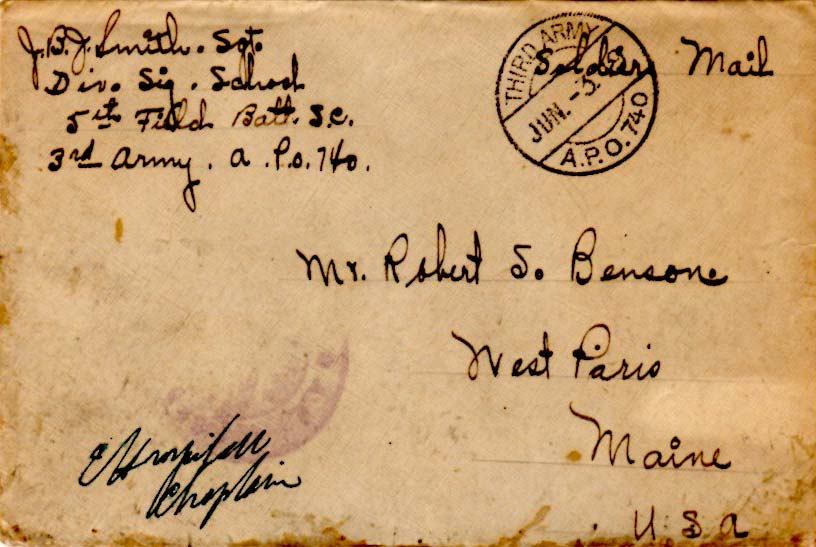 J.B.J. Smith. Sgt.
Div. Sig. School
5th Field Batt. S.C.
3rd Army. A.P.O. 740.
Soldier Mail
THIRD ARMY
JUN. -3.
A.P.O. 740
Mr. Robert S. Benson
West Paris
Maine
U.S.A
Chaplain